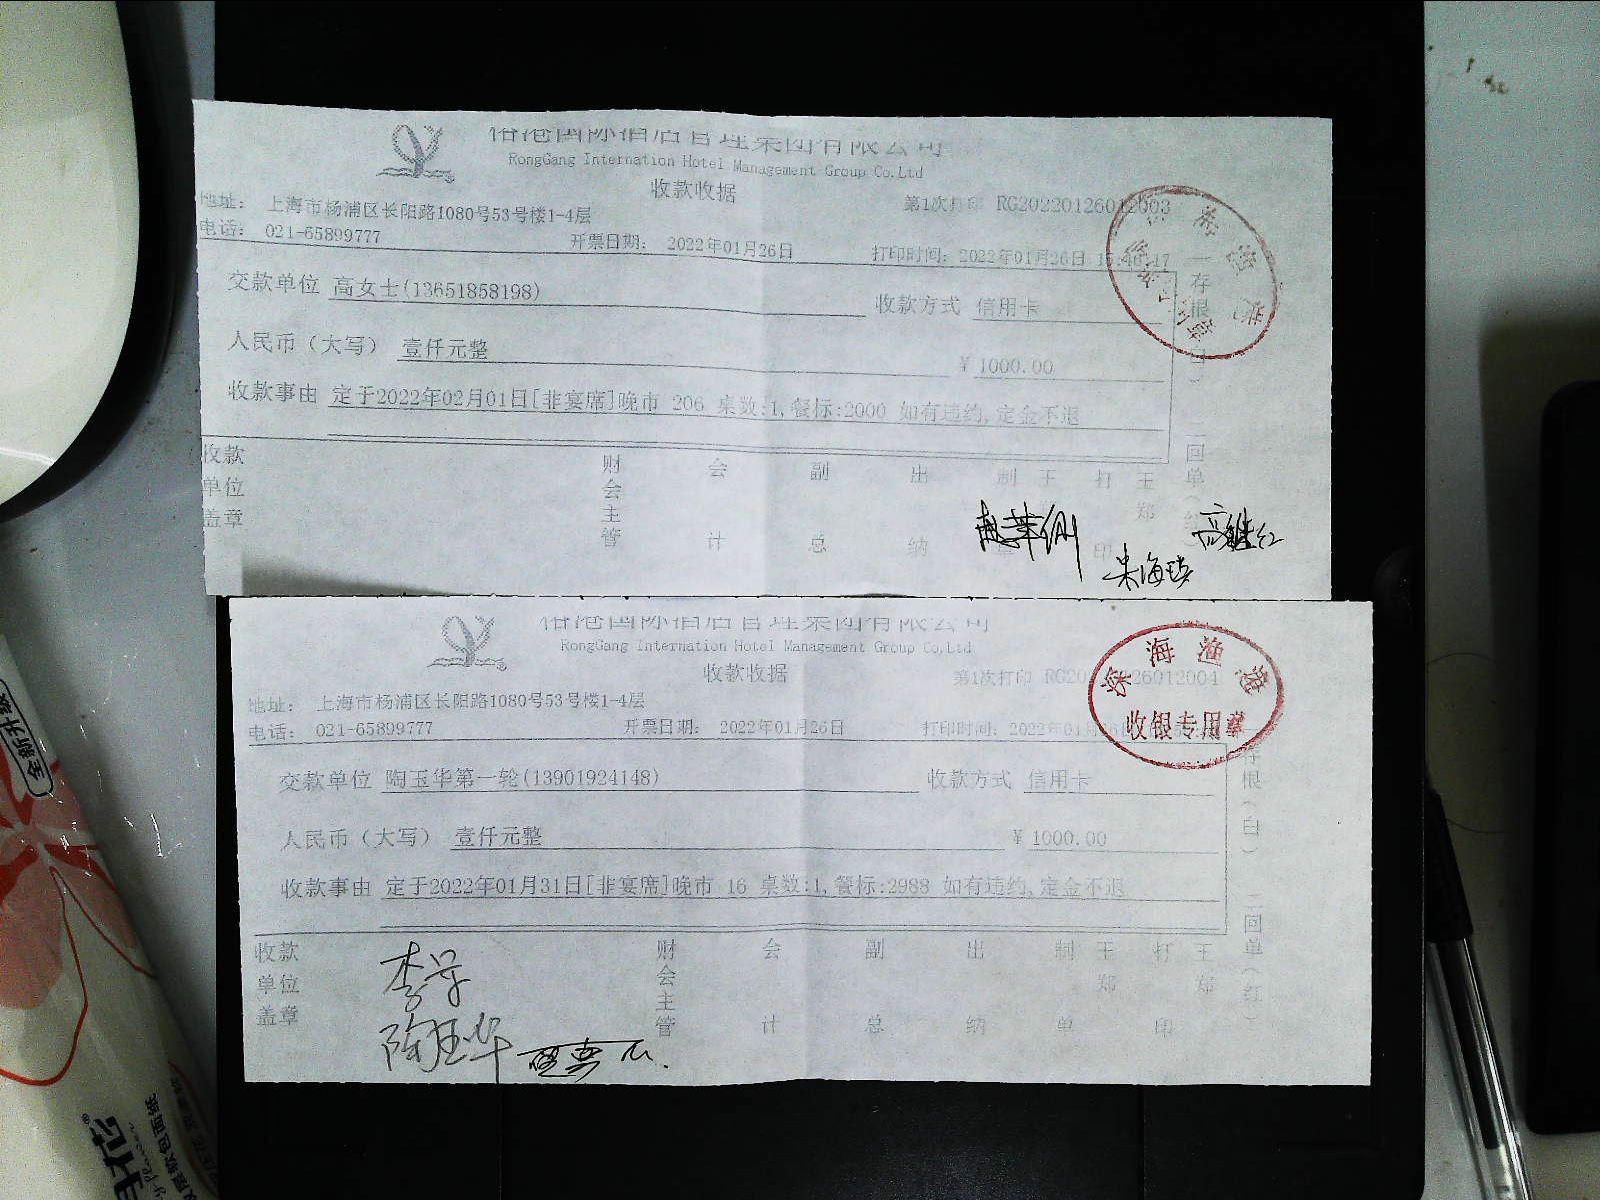 榕港国际酒店管理集团有限公司
RongGang Internation Hotel Management Group Co.Ltd
收款收据
地址： 上海市杨浦区长阳路1080号53号楼1-4层
第1次打印 RG20220126012003
电话： 021-65899777 开票日期： 2022年01月26日 打印时间：2022年01月26日
交款单位 高女士(13651858198) 收款方式 信用卡
人民币（大写） 壹仟元整 ￥ 1000.00
收款事由 定于2022年02月01日[非宴席]晚市 206 桌数:1,餐标:2000 如有违约,定金不退
一存根（白） 二回单（红）
收款单位盖章 财会主管 会计 副总 出纳 制单 王郑 打印 王郑
朱海瑛
高继红
榕港国际酒店管理集团有限公司
RongGang Internation Hotel Management Group Co,Ltd
收款收据
第1次打印 RG20220126012004
地址： 上海市杨浦区长阳路1080号53号楼1-4层
电话： 021-65899777 开票日期： 2022年01月26日 打印时间：2022年01月
深海渔港
收银专用章
交款单位 陶玉华第一轮(13901924148) 收款方式 信用卡
人民币（大写） 壹仟元整 ￥ 1000.00
收款事由 定于2022年01月31日[非宴席]晚市 16 桌数:1,餐标:2988 如有违约,定金不退
存根（白） 二回单（红）
收款单位盖章 财会主管 会计 副总 出纳 制单 王郑 打印 王郑
陶玉华
全新升级
软包面纸